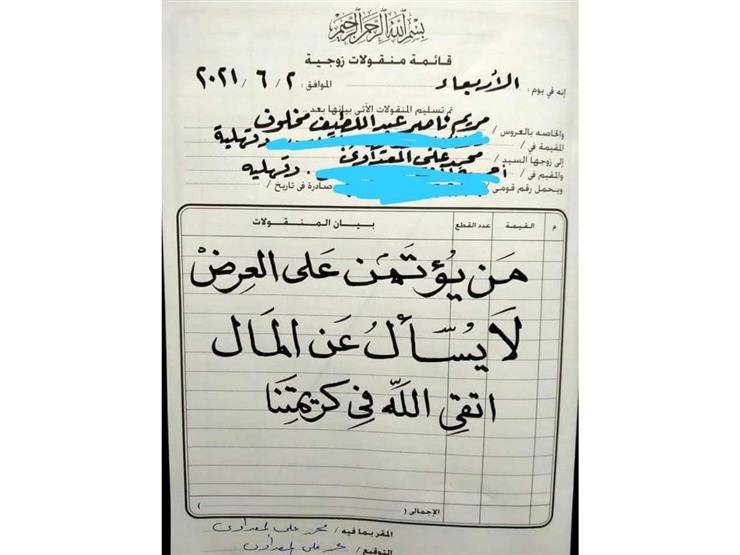 بسم الله الرحمن الرحيم
قائمة منقولات زوجية
إنه في يوم : الأربعاء الموافق : ٢ / ٦ / ٢٠٢١
تم تسليم المنقولات الآتى بيانها بعد
والخاصه بالعروس / مريم ناصر عبد اللطيف مخلوف
المقيمة في / دقهلية
إلى زوجها السيد / محمد على المعداوى
والمقيم فى / دقهليه
ويحمل رقم قومى / صادرة في تاريخ /
م القيمة عدد القطع بيان المنقولات
مَن يُؤتَمَن عَلى العِرضْ
لَا يُسّألُ عَن المَال
اتقِ اللَّه فِي كَرِيمَتِنَا
الإجمالى ( )
المقر بما فيه / محمد على المعداوى
التوقيع / محمد على المعداوى